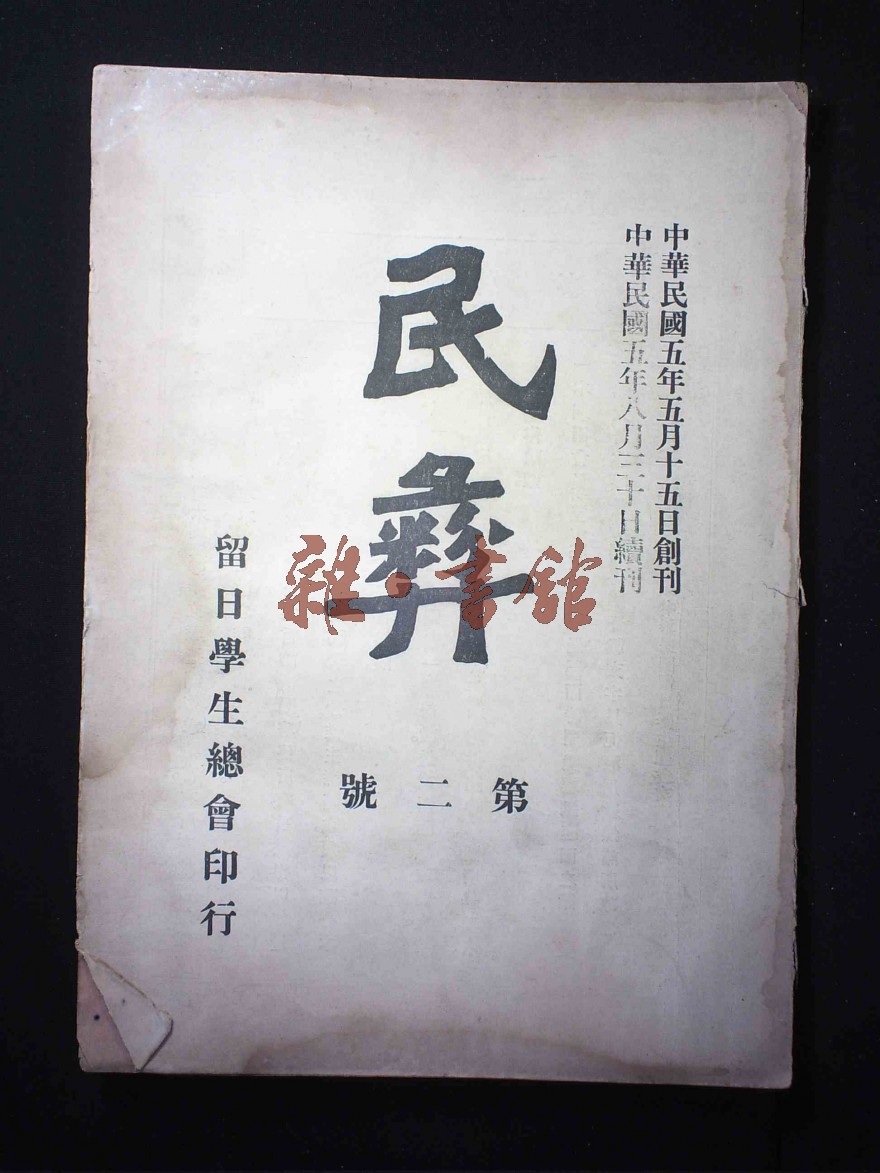 中華民國五年五月十五日創刊
中華民國五年八月三十日續刊
民彝
第二號
留日學生總會印行
雜·書館